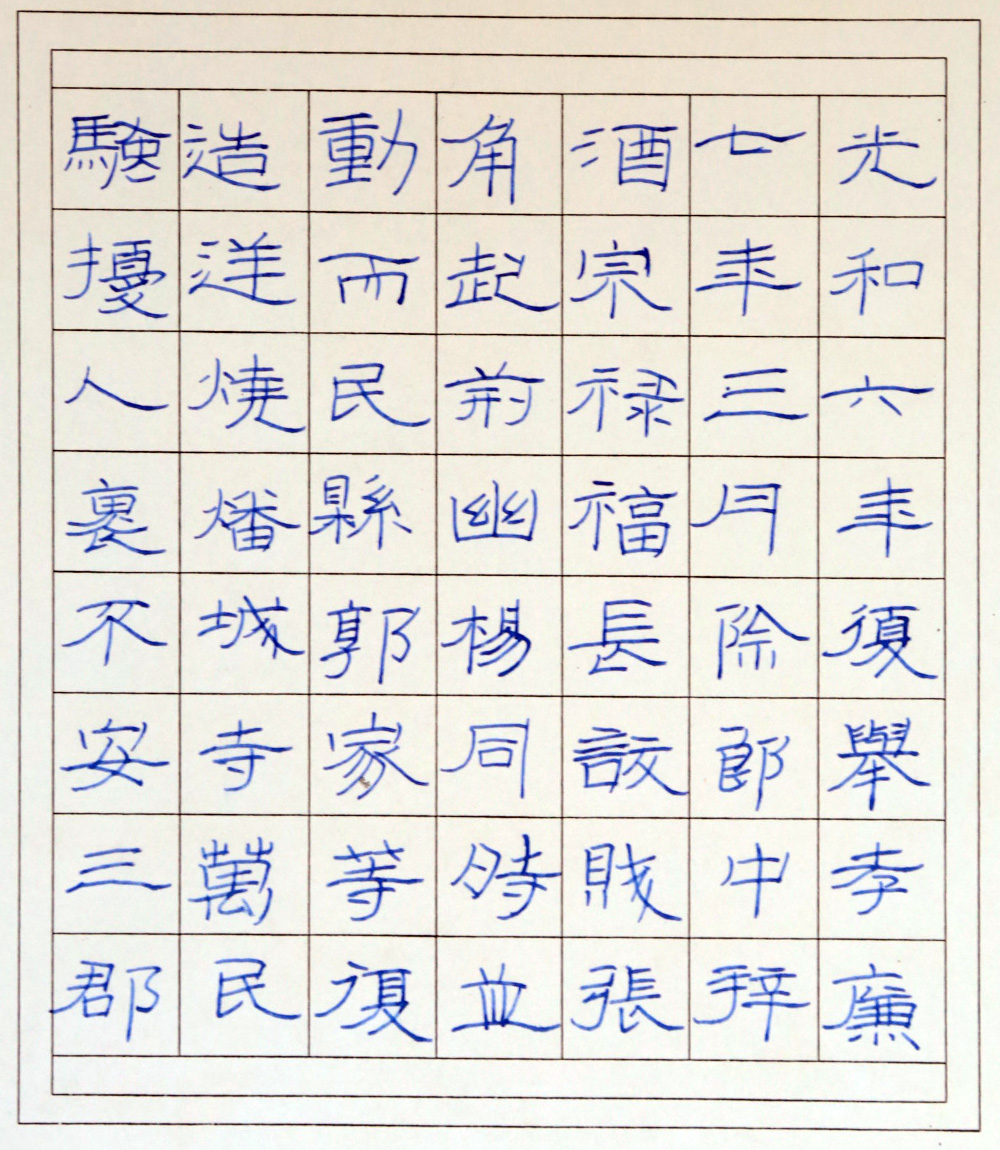 光和六年復舉孝廉
七年三月除郎中拜
酒宗禄福長訞賊張
角起荊幽楊同時並
動而民縣郭家等復
造逆燒燔城寺萬民
騷擾人裹不安三郡